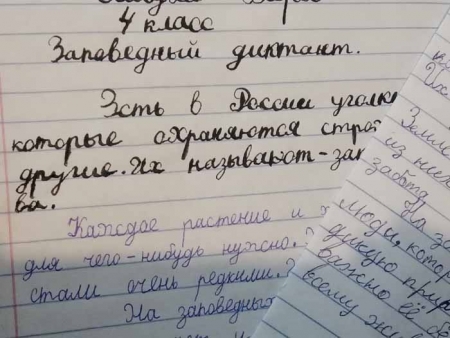 4 класс
Заповедный диктант.
Зсть в России уголк
которые охраняются стро
другие. Их называют-зап
ва.
Каждое растение и
для чего-нибудь нужно.
стали очень редкими.
На заповедных
Земле
из них
заботу
На за
Люди, котор
дикую при
важно её
всему жи